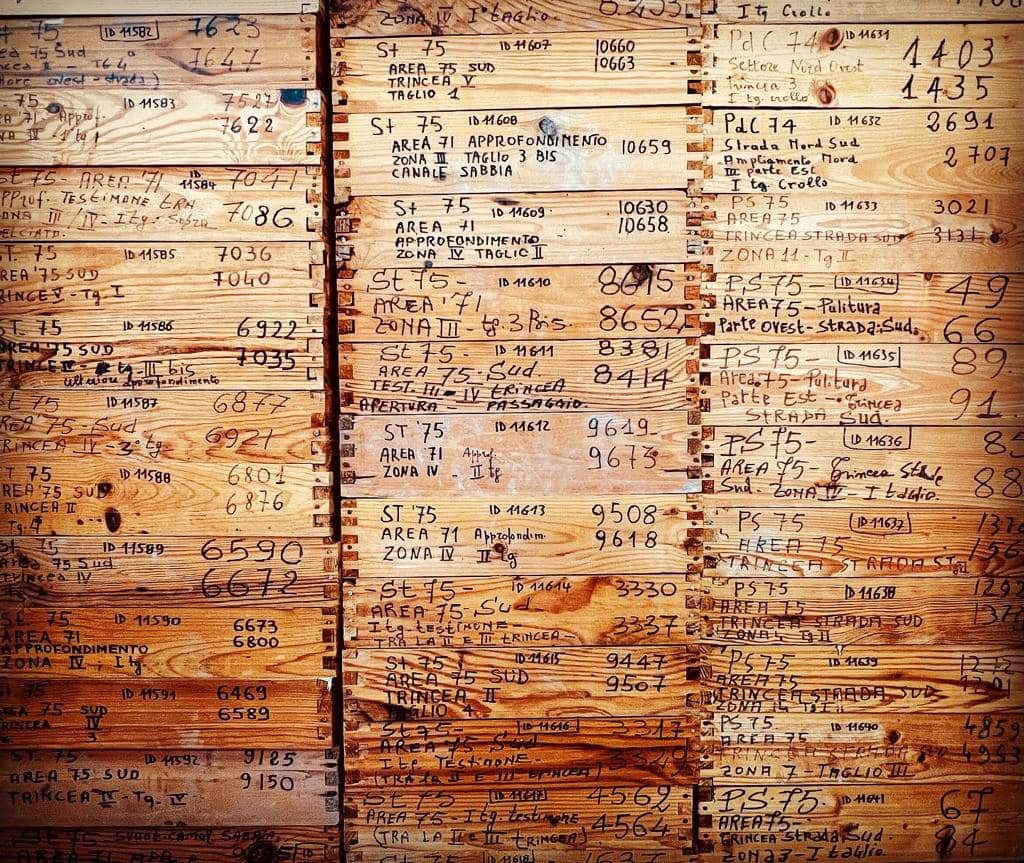 75 ID 11582 7623
75 Sud 7647
ovest - strada)
75 ID 11583 7527
7622
St 75 - AREA '71 ID 11584 7041
TESTIMONE TRA 7086
III / IV - I tg.
T. 75 ID 11585 7036
REA '75 SUD 7040
RINCE V - Tg I
ST. 75 ID 11586 6922
AREA '75 SUD 7035
tg III bis
ulteriore approfondimento
St 75 ID 11587 6877
AREA 75-Sud 6921
RINCEA IV - 3° tg.
T 75 ID 11588 6801
REA '75 SUD 6876
RINCEA II
Tg. 4
St 75 ID 11589 6590
Area 75 Sud 6672
Trincea IV
St 75 ID 11590 6673
AREA 71 6800
APPROFONDIMENTO
ZONA IV, I tg.
75 ID 11591 6469
75 SUD 6589
ST. 75 ID 11592 9125
AREA 75 SUD 9150
TRINCEA IV - Tg. IV
ZONA IV I taglio.
St 75 ID 11607 10660
AREA 75 SUD 10663
TRINCEA V
TAGLIO 1
St 75 ID 11608
AREA 71 APPROFONDIMENTO 10659
ZONA III TAGLIO 3 BIS
CANALE SABBIA
St 75 ID 11609 10630
AREA 71 10658
APPROFONDIMENTO
ZONA IV TAGLIO II
St 75 - ID 11610 8615
AREA '71
ZONA III - tg. 3 Bis. 8652
St 75 - ID 11611 8381
AREA 75-Sud. 8414
TEST. III - IV TRINCEA
APERTURA - PASSAGGIO.
ST '75 ID 11612 9619
AREA '71 Appr. 9673
ZONA IV II tg
ST '75 ID 11613 9508
AREA 71 Approfondim. 9618
ZONA IV II tg
St 75 - ID 11614 3330
AREA 75-Sud
I tg testimone - 3337
TRA LA II E III TRINCEA -
St 75 ID 11615 9447
AREA 75 SUD 9507
TRINCEA II
TAGLIO 4
St 75 - ID 11616 3347
AREA 75 Sud
I tg Testimone - 3529
(TRA LA II E III TRINCEA)
St 75 - ID 11617 4562
AREA 75 - I tg. testimone 4564
(TRA LA II E III TRINCEA)
ID 11618
I tg Crollo
PdC 74 ID 11631 1403
Settore Nord Ovest 1435
Trincea 3
I tg. crollo
PdC 74 ID 11632 2691
Strada Nord Sud 2707
Ampliamento Nord
III parte Est
I tg. Crollo
PS 75 ID 11633 3021
AREA 75
TRINCEA STRADA SUD 3131
ZONA 11 - Tg II
PS 75 - ID 11634 49
AREA 75 - Pulitura
Parte ovest - STRADA Sud. 66
PS 75 - ID 11635 89
Area 75 - Pulitura 91
Parte Est - trincea
STRADA Sud.
PS 75 - ID 11636
AREA 75 - trincea Strade 88
Sud. ZONA IV - I taglio.
PS 75 ID 11637
AREA 75
TRINCEA STRADA
PS 75 ID 11638
AREA 75
TRINCEA STRADA SUD
PS 75 ID 11639
AREA 75
TRINCEA STRADA SUD
PS 75 ID 11640 4859
AREA 75 4953
TRINCEA STRADA SUD
ZONA 7 - TAGLIO III
PS. 75. ID 11641 67
AREA 75 - 84
trincea strada Sud
ZONA 3 - I taglio.